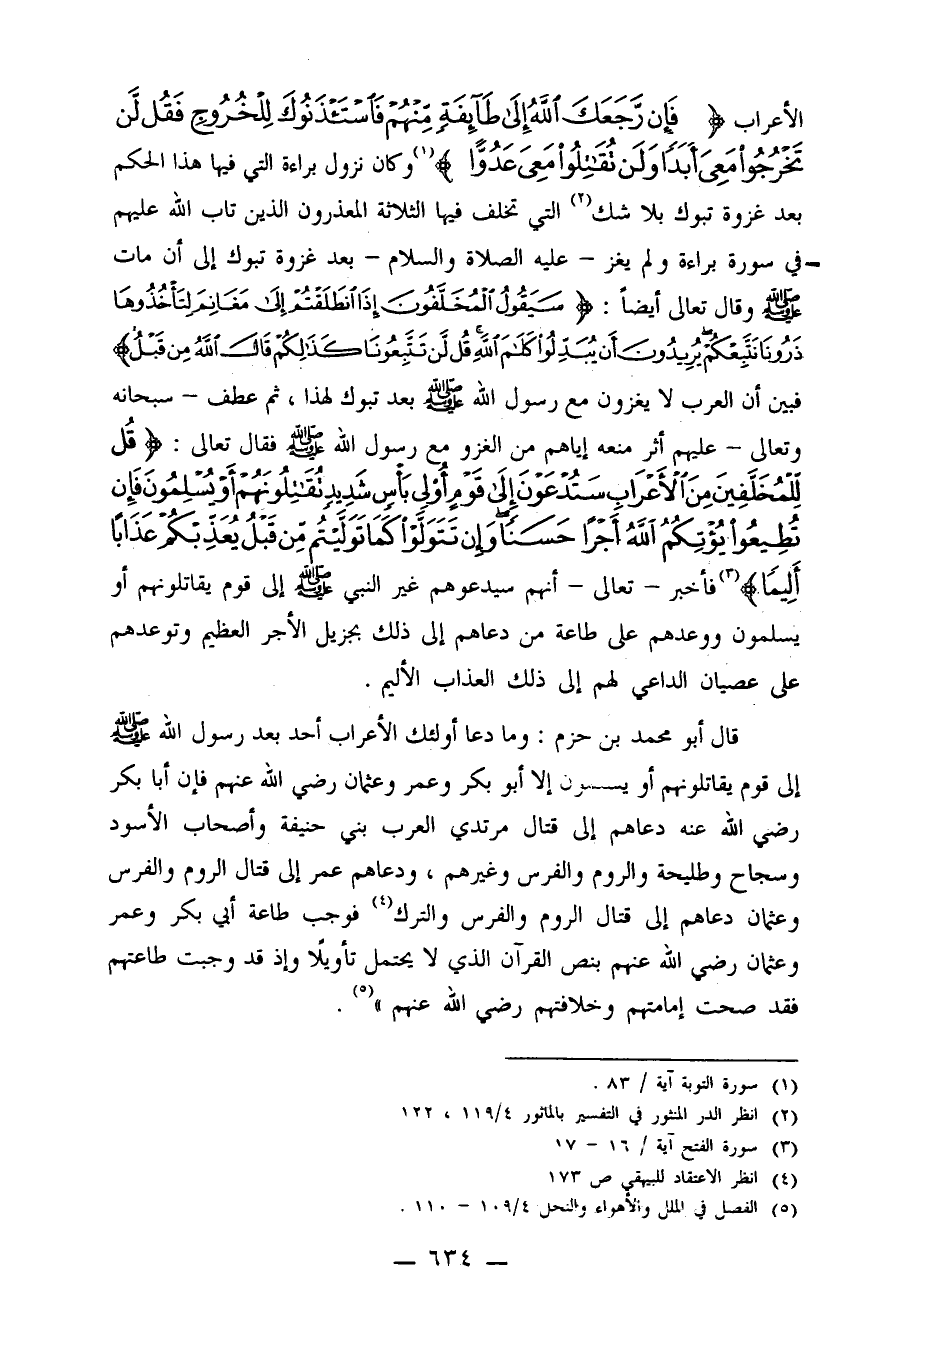 الأعراب ﴿ فَإِن رَّجَعَكَ ٱللَّهُ إِلَىٰ طَآئِفَةٍ مِّنْهُمْ فَٱسْتَـْٔذَنُوكَ لِلْخُرُوجِ فَقُل لَّن
تَخْرُجُوا۟ مَعِىَ أَبَدًا وَلَن تُقَـٰتِلُوا۟ مَعِىَ عَدُوًّا ﴾(١) وكان نزول براءة التي فيها هذا الحكم
بعد غزوة تبوك بلا شك(٢) التي تخلف فيها الثلاثة المعذرون الذين تاب الله عليهم
في سورة براءة ولم يغز – عليه الصلاة والسلام – بعد غزوة تبوك إلى أن مات
ﷺ وقال تعالى أيضاً : ﴿ سَيَقُولُ ٱلْمُخَلَّفُونَ إِذَا ٱنطَلَقْتُمْ إِلَىٰ مَغَانِمَ لِتَأْخُذُوهَا
ذَرُونَا نَتَّبِعْكُمْ ۖ يُرِيدُونَ أَن يُبَدِّلُوا۟ كَلَـٰمَ ٱللَّهِ ۚ قُل لَّن تَتَّبِعُونَا كَذَٰلِكُمْ قَالَ ٱللَّهُ مِن قَبْلُ ۖ ﴾
فبين أن العرب لا يغزون مع رسول الله ﷺ بعد تبوك لهذا ، ثم عطف – سبحانه
وتعالى – عليهم أثر منعه إياهم من الغزو مع رسول الله ﷺ فقال تعالى : ﴿ قُل
لِّلْمُخَلَّفِينَ مِنَ ٱلْأَعْرَابِ سَتُدْعَوْنَ إِلَىٰ قَوْمٍ أُو۟لِى بَأْسٍ شَدِيدٍ تُقَـٰتِلُونَهُمْ أَوْ يُسْلِمُونَ ۖ فَإِن
تُطِيعُوا۟ يُؤْتِكُمُ ٱللَّهُ أَجْرًا حَسَنًا ۖ وَإِن تَتَوَلَّوْا۟ كَمَا تَوَلَّيْتُم مِّن قَبْلُ يُعَذِّبْكُمْ عَذَابًا
أَلِيمًا ﴾(٣) فأخبر – تعالى – أنهم سيدعوهم غير النبي ﷺ إلى قوم يقاتلونهم أو
يسلمون ووعدهم على طاعة من دعاهم إلى ذلك بجزيل الأجر العظيم وتوعدهم
على عصيان الداعي لهم إلى ذلك العذاب الأليم .
قال أبو محمد بن حزم : وما دعا أولئك الأعراب أحد بعد رسول الله ﷺ
إلى قوم يقاتلونهم أو إلا أبو بكر وعمر وعثمان رضي الله عنهم فإن أبا بكر
رضي الله عنه دعاهم إلى قتال مرتدي العرب بني حنيفة وأصحاب الأسود
وسجاح وطليحة والروم والفرس وغيرهم ، ودعاهم عمر إلى قتال الروم والفرس
وعثمان دعاهم إلى قتال الروم والفرس والترك(٤) فوجب طاعة أبي بكر وعمر
وعثمان رضي الله عنهم بنص القرآن الذي لا يحتمل تأويلًا وإذ قد وجبت طاعتهم
فقد صحت إمامتهم وخلافتهم رضي الله عنهم »(٥) .
(١) سورة التوبة آية / ٨٣ .
(٢) انظر الدر المنثور في التفسير بالماثور ١١٩/٤ ، ١٢٢
(٣) سورة الفتح آية / ١٦ – ١٧
(٤) انظر الاعتقاد للبيهقي ص ١٧٣
(٥) الفصل في الملل والأهواء والنحل ١٠٩/٤ – ١١٠ .
— ٦٣٤ —